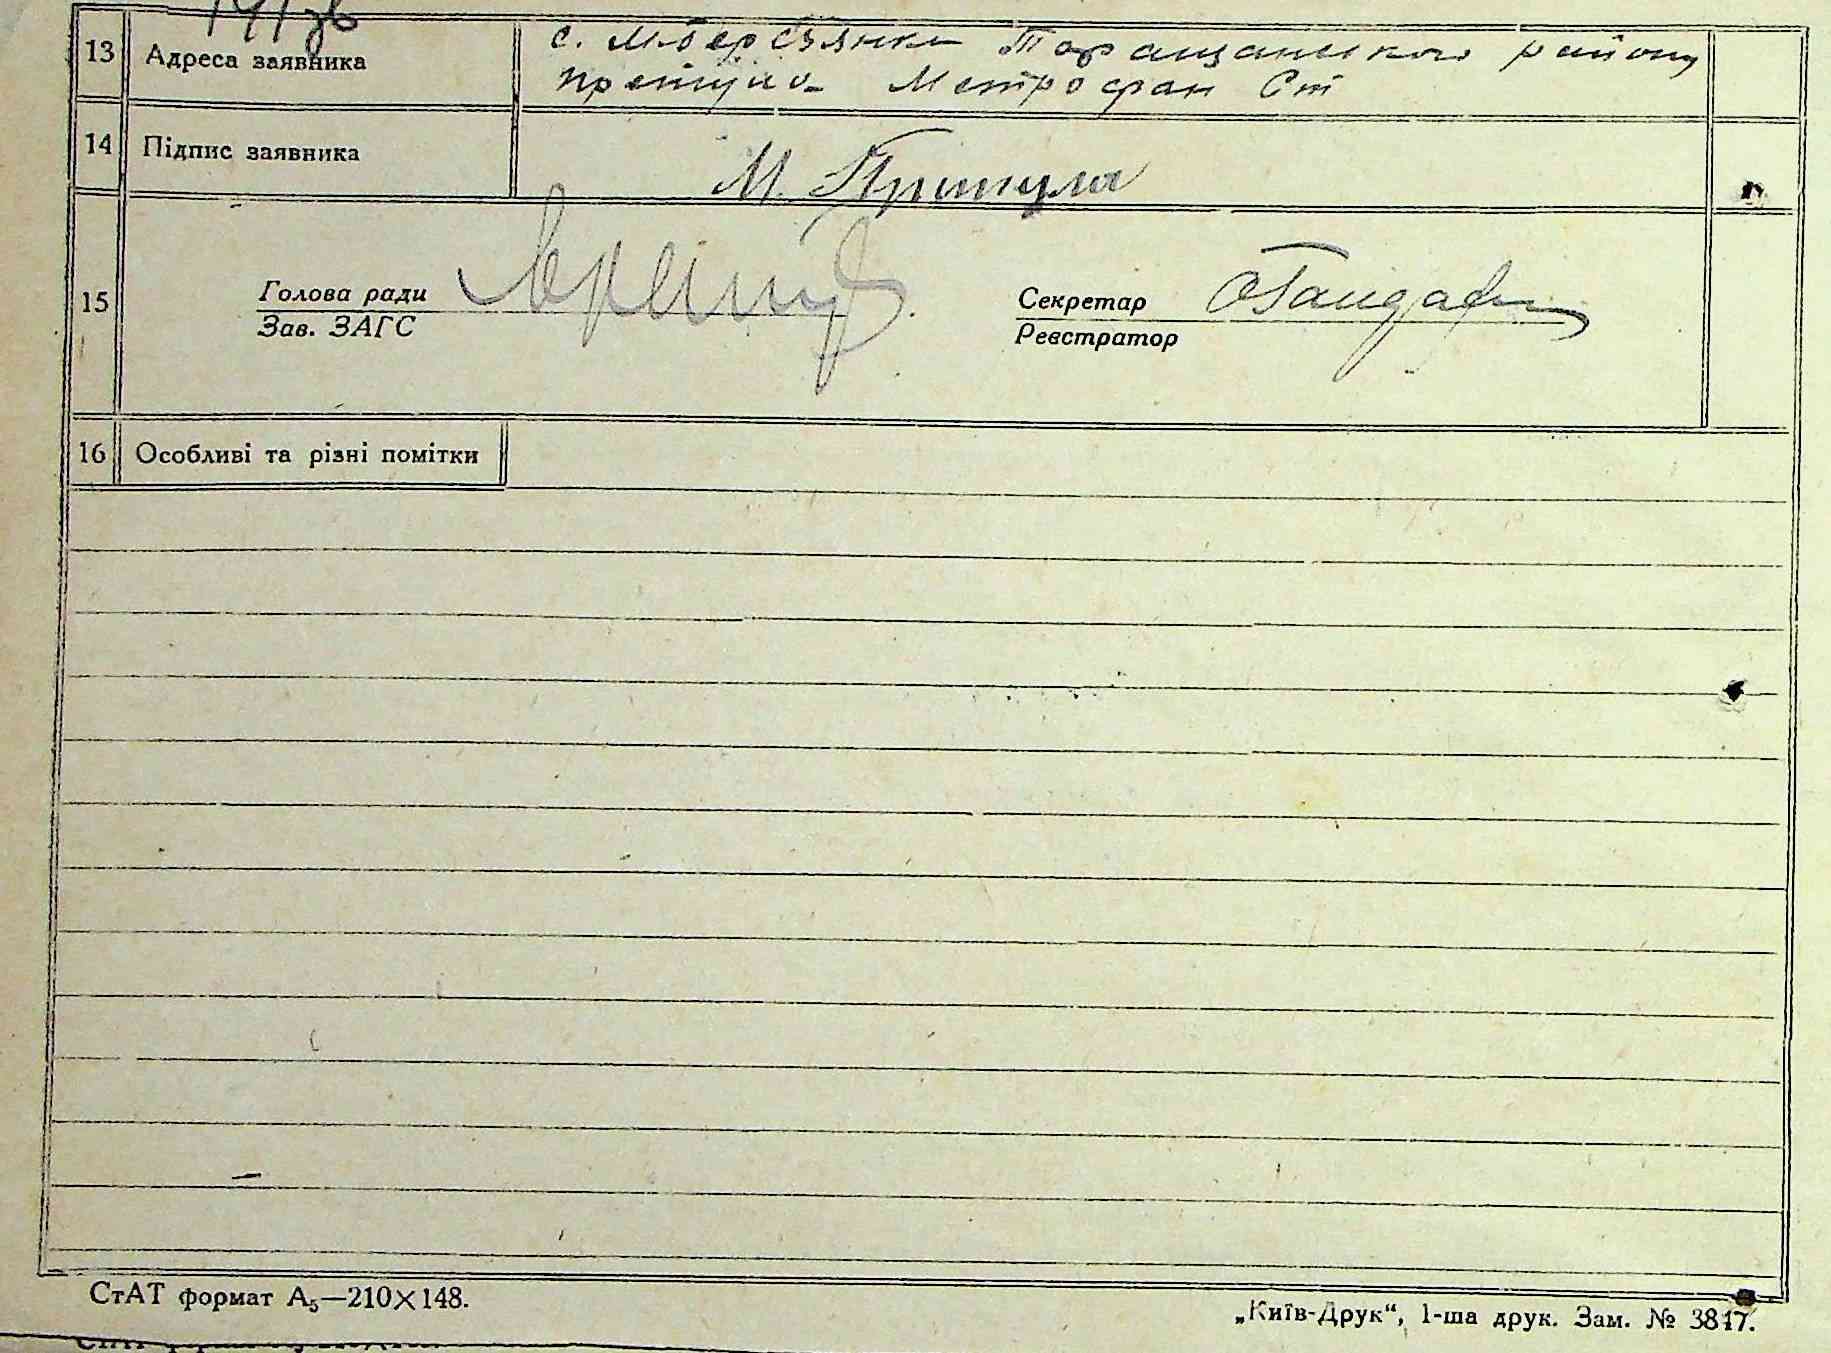 13 Адреса заявника с. М-березянка Таращанського району
претула Метрофан Ст
14 Підпис заявника М. Притула
15 Голова ради
Зав. ЗАГС
Секретар
Реєстратор
16 Особливі та різні помітки
СтАТ формат А₅—210×148.
„Київ-Друк“, 1-ша друк. Зам. № 3817.